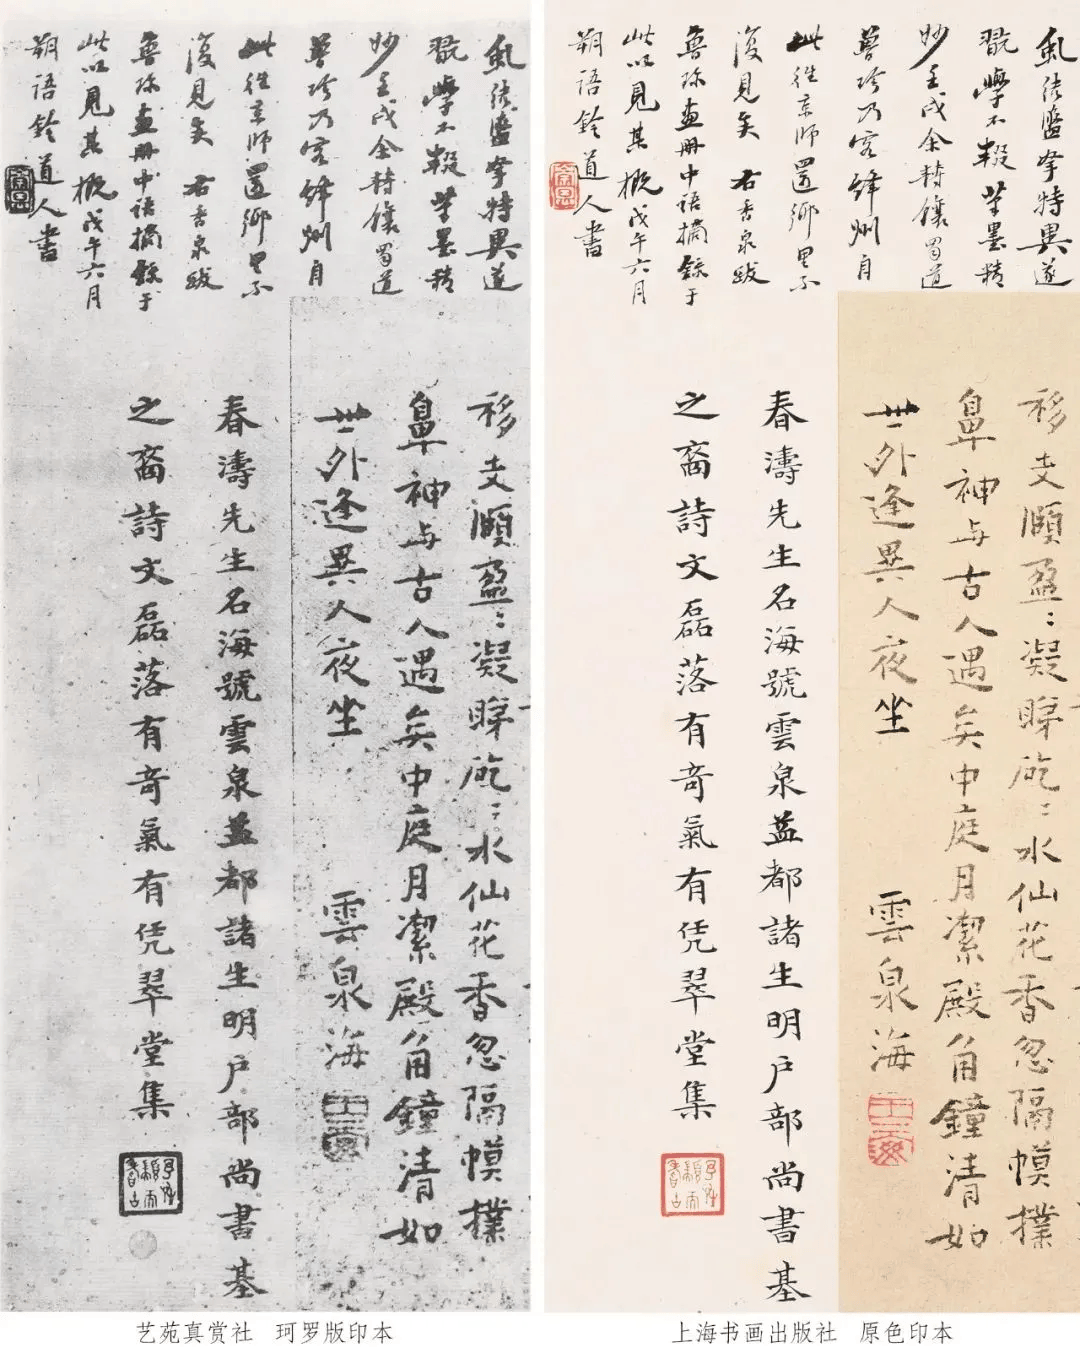 特異遂
翫學不輟筆墨精
妙壬戌余轉饟蜀道
魯珍乃客絳州自
此往京師還鄉里不
復見矣 右香泉跋
魯珍畫册中語摘錄于
此以見其概戊午六月
朔語鈴道人書
移支頤盈〻凝睇脈〻水仙花香忽隔幙撲
鼻神与古人遇矣中庭月潔殿角鐘清如
世外逢異人夜坐 雲泉海
春濤先生名海號雲泉益都諸生明户部尚書基
之裔詩文磊落有奇氣有凭翠堂集
艺苑真赏社 珂罗版印本
特異遂
翫學不輟筆墨精
妙壬戌余轉饟蜀道
魯珍乃客絳州自
此往京師還鄉里不
復見矣 右香泉跋
魯珍畫册中語摘錄于
此以見其概戊午六月
朔語鈴道人書
移支頤盈〻凝睇脈〻水仙花香忽隔幙撲
鼻神与古人遇矣中庭月潔殿角鐘清如
世外逢異人夜坐 雲泉海
春濤先生名海號雲泉益都諸生明户部尚書基
之裔詩文磊落有奇氣有凭翠堂集
上海书画出版社 原色印本